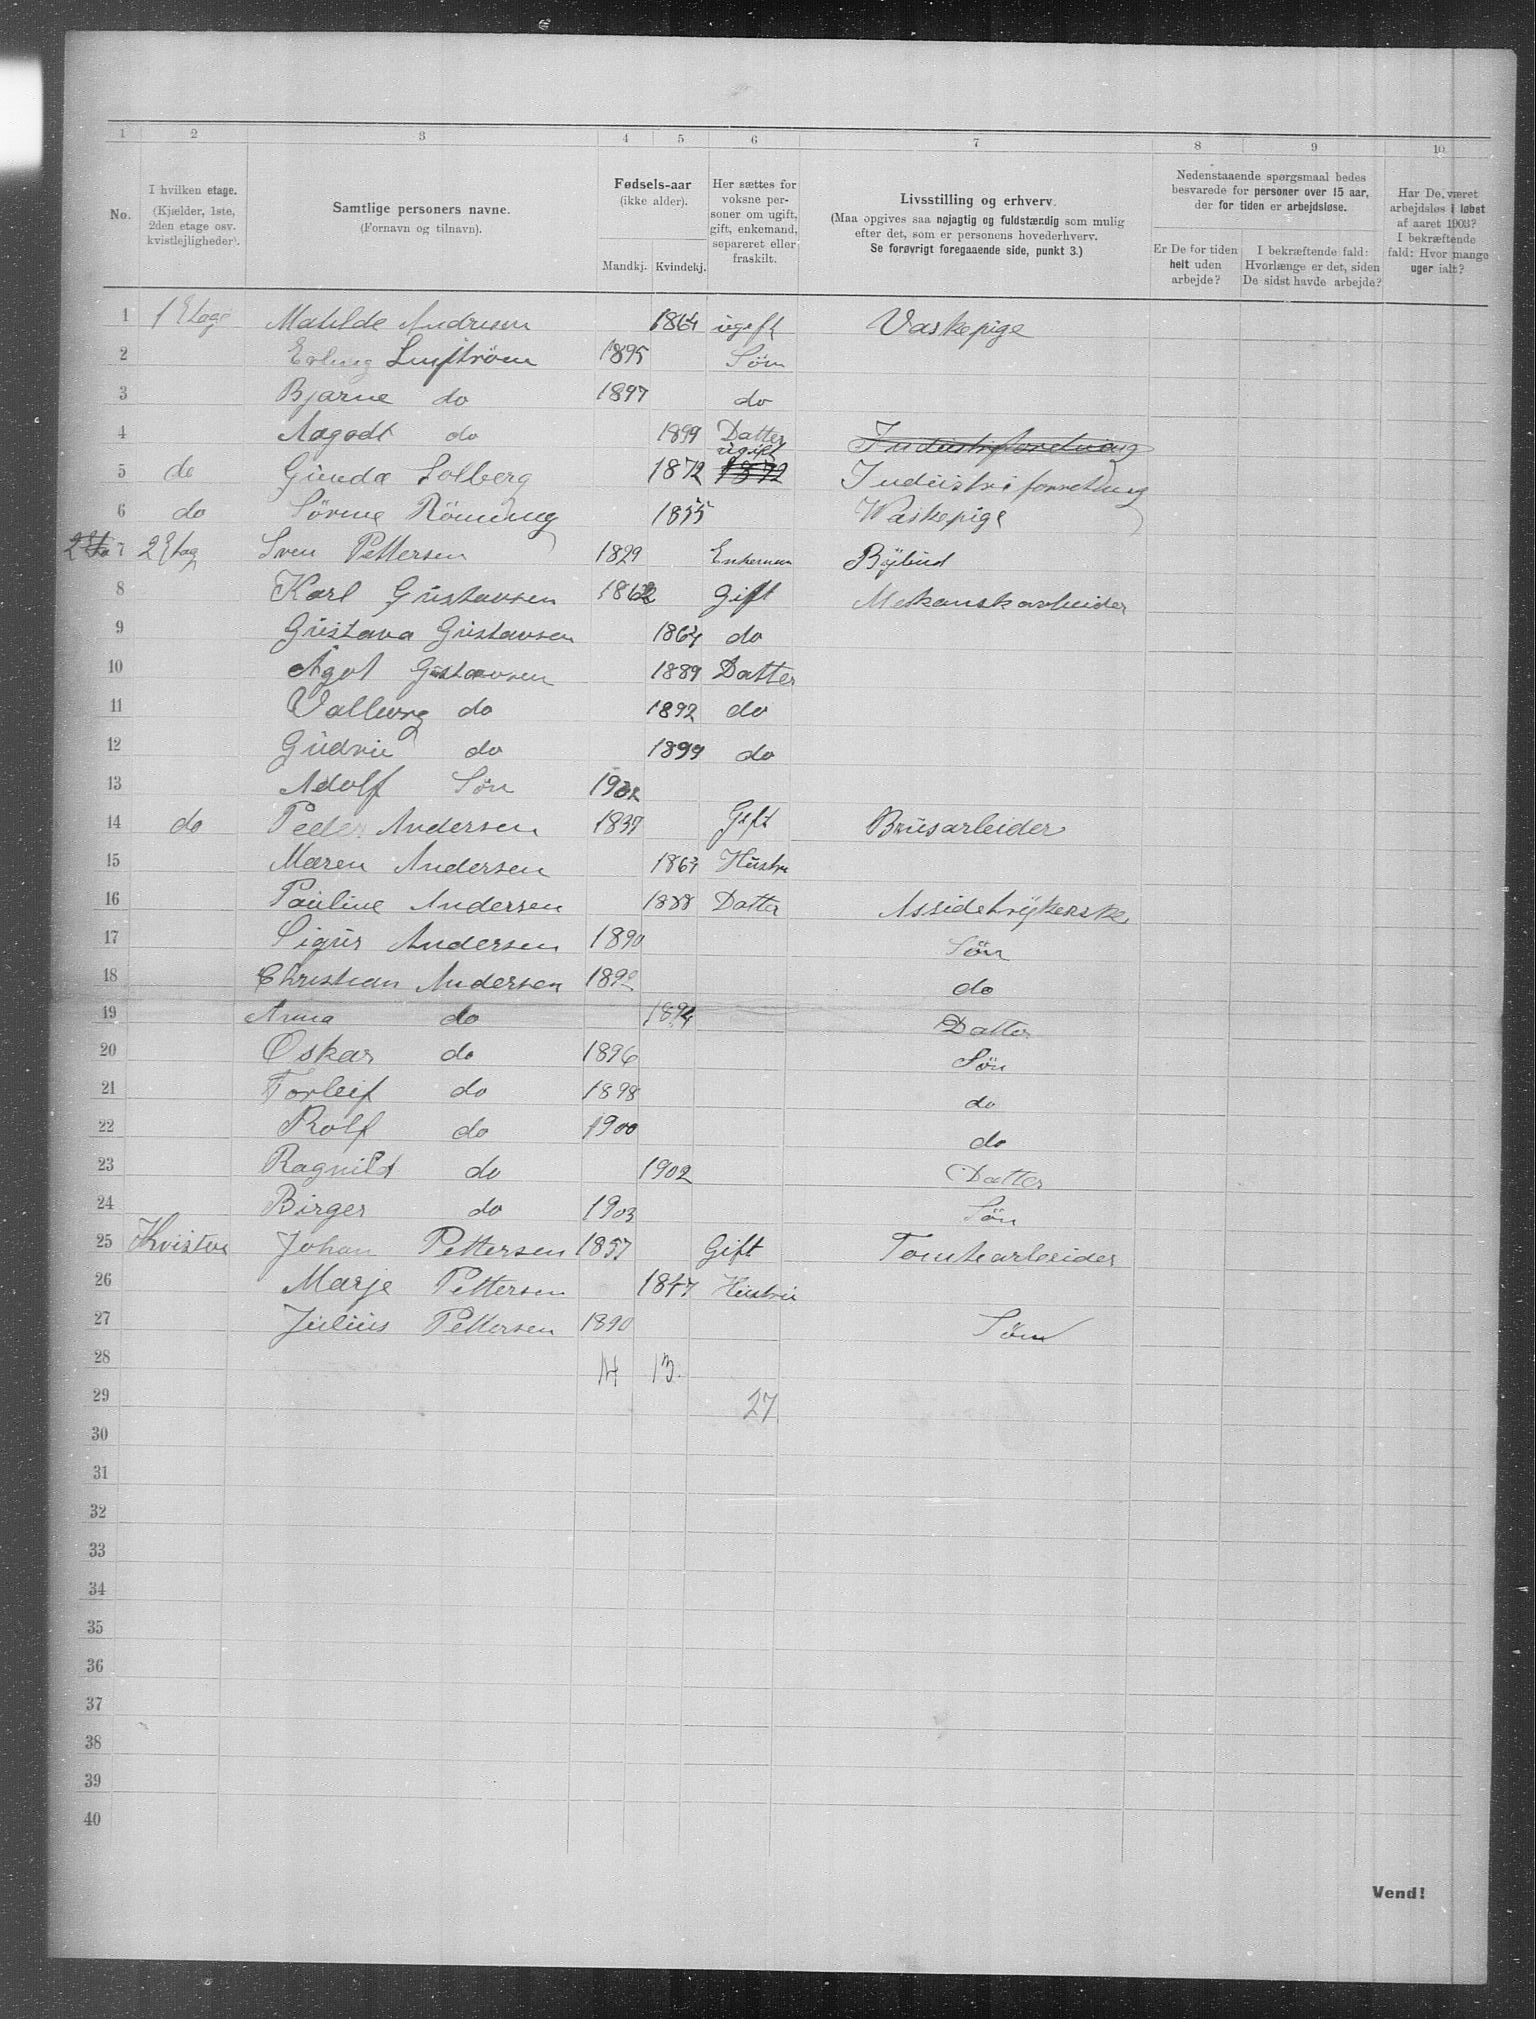 1 2 3 4 5 6 7 8 9 10
No.
I hvilken etage.
(Kjælder, 1ste,
2den etage osv.
kvistlejligheder).
Samtlige personers navne.
(Fornavn og tilnavn).
Fødsels-aar
(ikke alder).
Mandkj. Kvindekj.
Her sættes for
voksne per-
soner om ugift,
gift, enkemand,
separeret eller
fraskilt.
Livsstilling og erhverv.
(Maa opgives saa nøjagtig og fuldstærdig som mulig
efter det, som er personens hovederhverv.
Se forøvrigt foregaaende side, punkt 3.)
Nedenstaaende spørgsmaal bedes
besvarede for personer over 15 aar,
der for tiden er arbejdsløse.
Er De for tiden
helt uden
arbejde?
I bekræftende fald:
Hvorlænge er det, siden
De sidst havde arbejde?
Har De været
arbejdsløs i løbet
af aaret 1903?
I bekræftende
fald: Hvor mange
uger ialt?
1 1 Etage Matilde Andresen 1864 ugift Vaskepige
2 Erling 1895 Søn
3 Bjarne do 1897 do
4 Aagodt do 1899 Datter Industriforretning
5 do Gunda Solberg 1872 ugift 1872 Industriforretning
6 do Sørine Rönning 1855 Waskepige
7 2 Etag Sven Pettersen 1829 Enkeman Bÿbud
8 Karl Gustavsen 1862 Gift Mekanskarbeider
9 Gustava Gustavsen 1864 do
10 Agot Gustavsen 1889 Datter
11 Valborg do 1892 do
12 Gudrun do 1899 do
13 Adolf Søn 1902
14 do Peder Andersen 1837 Gift Brusarbeider
15 Maren Andersen 1864 Hustru
16 Pauline Andersen 1888 Datter
17 Sigur Andersen 1890 Søn
18 Christian Andersen 1892 do
19 Anna do 1894 Datter
20 Oskar do 1896 Søn
21 Torleif do 1898 do
22 Rolf do 1900 do
23 Ragnild do 1902 Datter
24 Birger do 1903 Søn
25 Kvisten Johan Pettersen 1857 Gift Tomtearbeider
26 Marje Pettersen 1847 Hustru
27 Julius Pettersen 1890 Søn
28 14 13.
29 27
30
31
32
33
34
35
36
37
38
39
40
Vend!